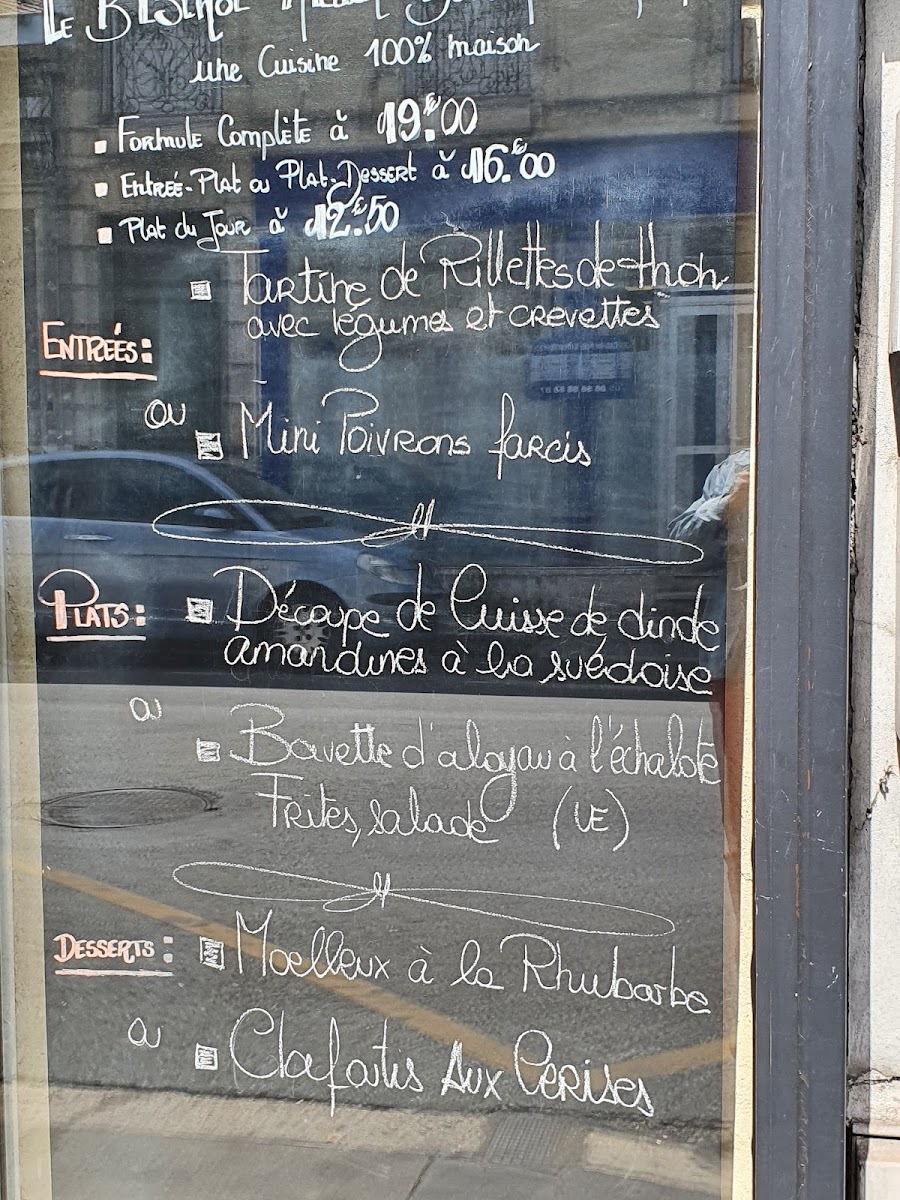 Le Bistrot
une Cuisine 100% maison
Formule Complète à 19.€00
Entrée-Plat ou Plat-Dessert à 16.€00
Plat du Jour à 12.€50
Tartine de Rillettes de thon
avec légumes et crevettes
Entrées:
ou
Mini Poivrons farcis
Plats:
Découpe de Cuisse de dinde
amandines à la suédoise
ou
Bavette d'aloyau à l'échalote
Frites, salade (UE)
Desserts:
Moelleux à la Rhubarbe
ou
Clafoutis Aux Cerises